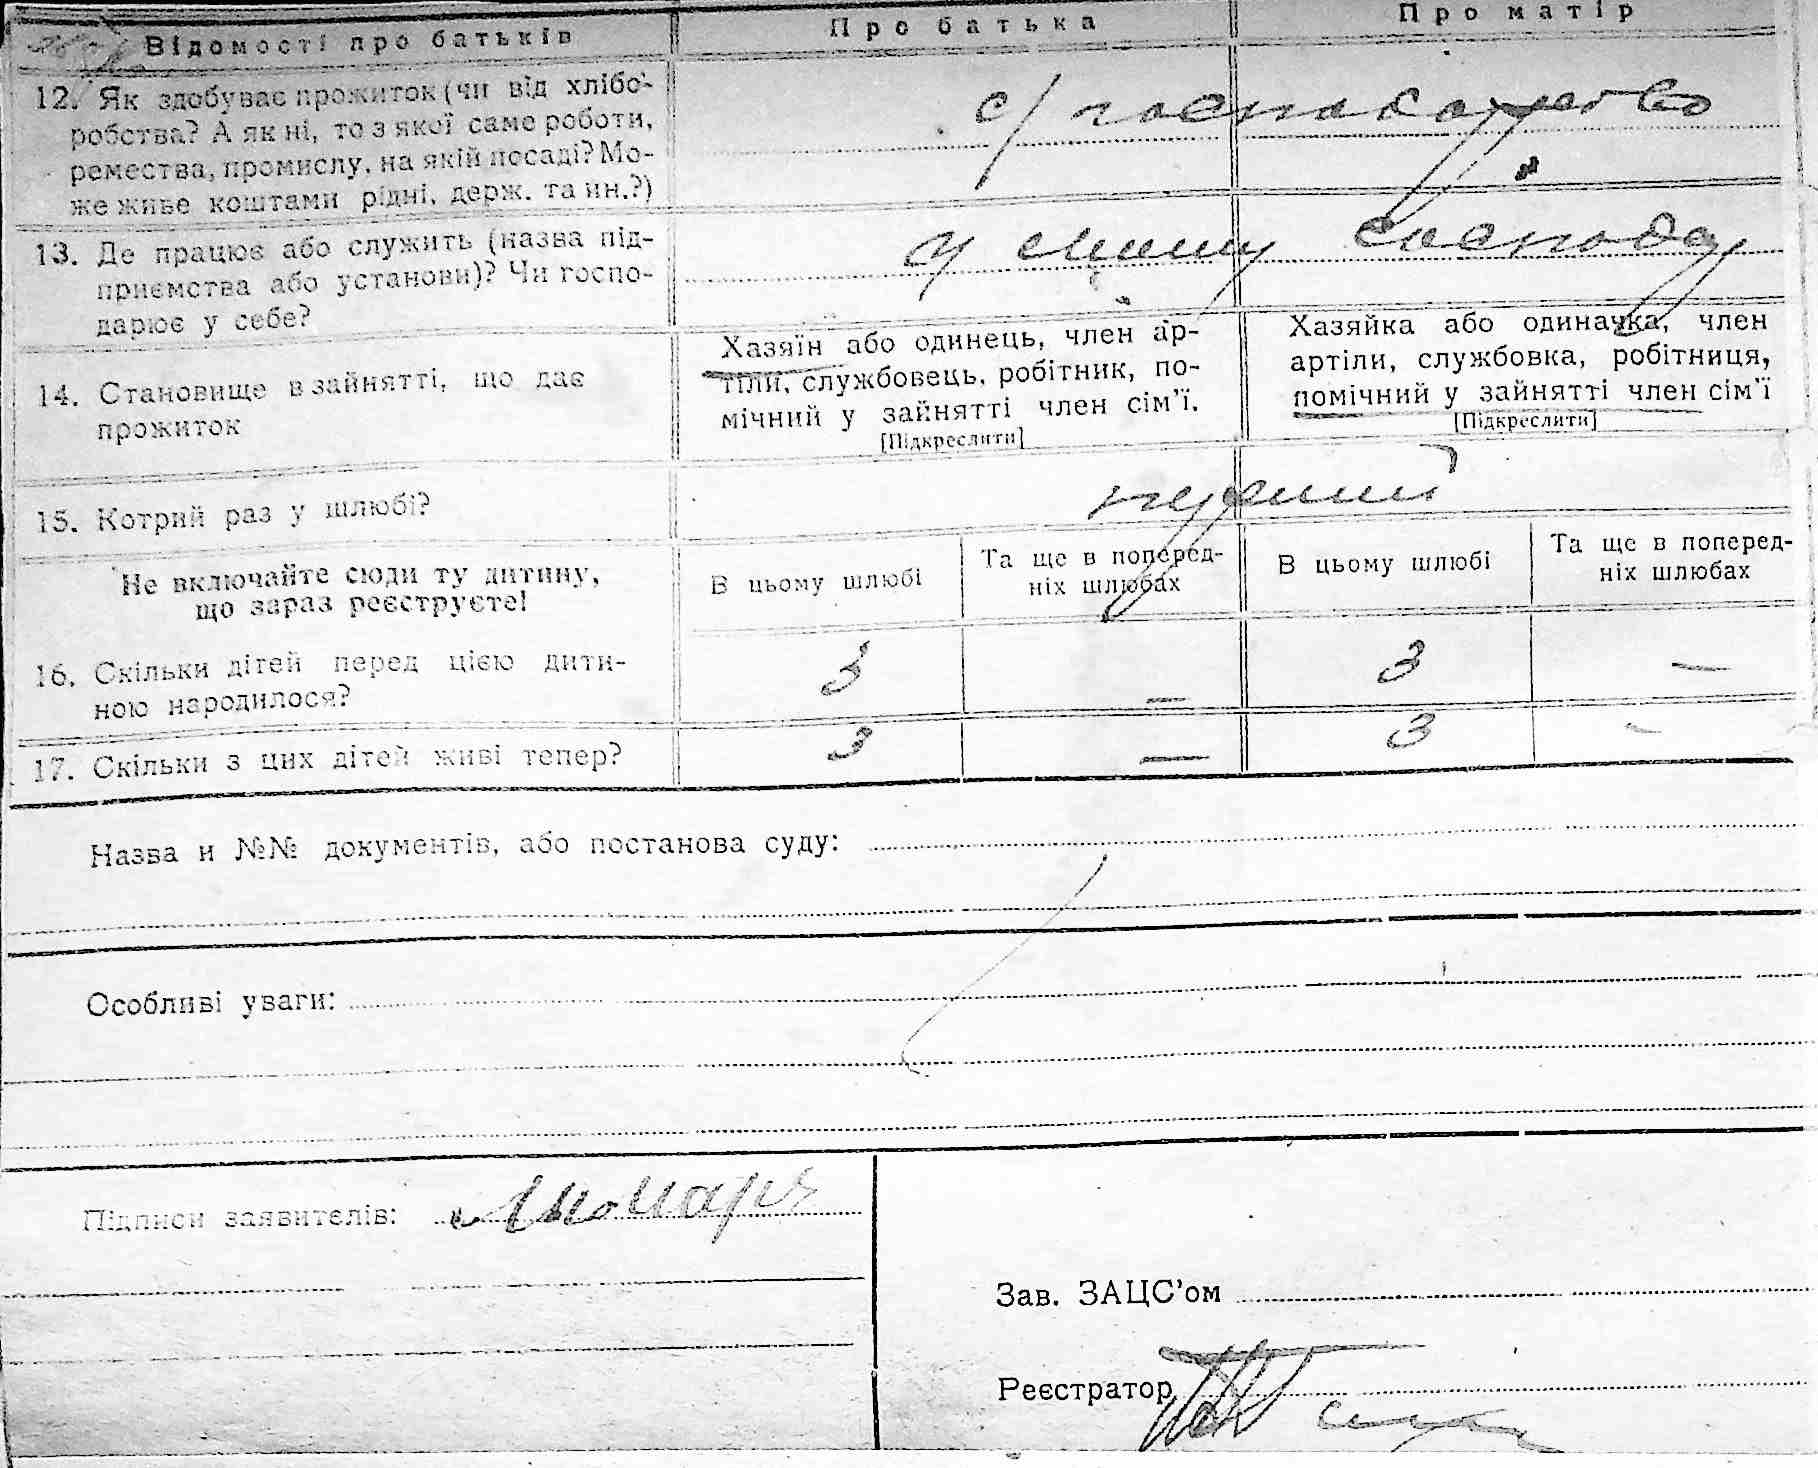 Відомості про батьків
Про батька
Про матір
12. Як здобуває прожиток (чи від хлібо-
робства? А як ні, то з якої саме роботи,
ремества, промислу, на якій посаді? Мо-
же живе коштами рідні, держ. та ин.?)
с/господарство
13. Де працює або служить (назва під-
приємства або установи)? Чи госпо-
дарює у себе?
у свому господар
14. Становище в зайнятті, що дає
прожиток
Хазяїн або одинець, член ар-
тіли, службовець, робітник, по-
мічний у зайнятті член сім'ї.
[Підкреслити]
Хазяйка або одиначка, член
артіли, службовка, робітниця,
помічний у зайнятті член сім'ї
[Підкреслити]
15. Котрий раз у шлюбі?
перший
Не включайте сюди ту дитину,
що зараз реєструєте!
В цьому шлюбі
Та ще в поперед-
ніх шлюбах
В цьому шлюбі
Та ще в поперед-
ніх шлюбах
16. Скільки дітей перед цією дити-
ною народилося?
3 — 3 —
17. Скільки з цих дітей живі тепер?
3 — 3 —
Назва и №№ документів, або постанова суду:
Особливі уваги:
Підписи заявителів:
Зав. ЗАЦС'ом
Реєстратор